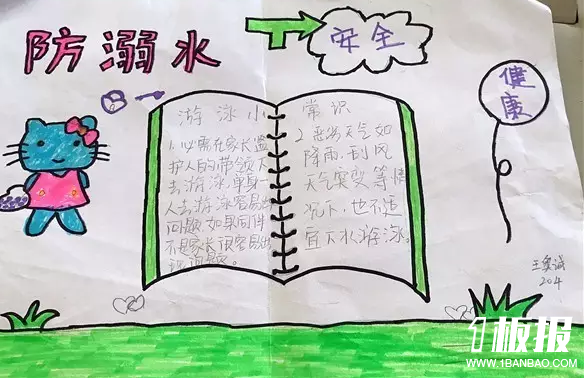 防溺水
安全
健康
游泳小常识
1.必需在家长监
护人的带领下
去游泳,单身一
人去游泳容易出
问题,如果同伴
不是家长很容易出
现问题。
2.恶劣天气如
降雨,刮风
天气突变等情
况下,也不适
宜下水游泳。
204
1板报
WWW.1BANBAO.COM